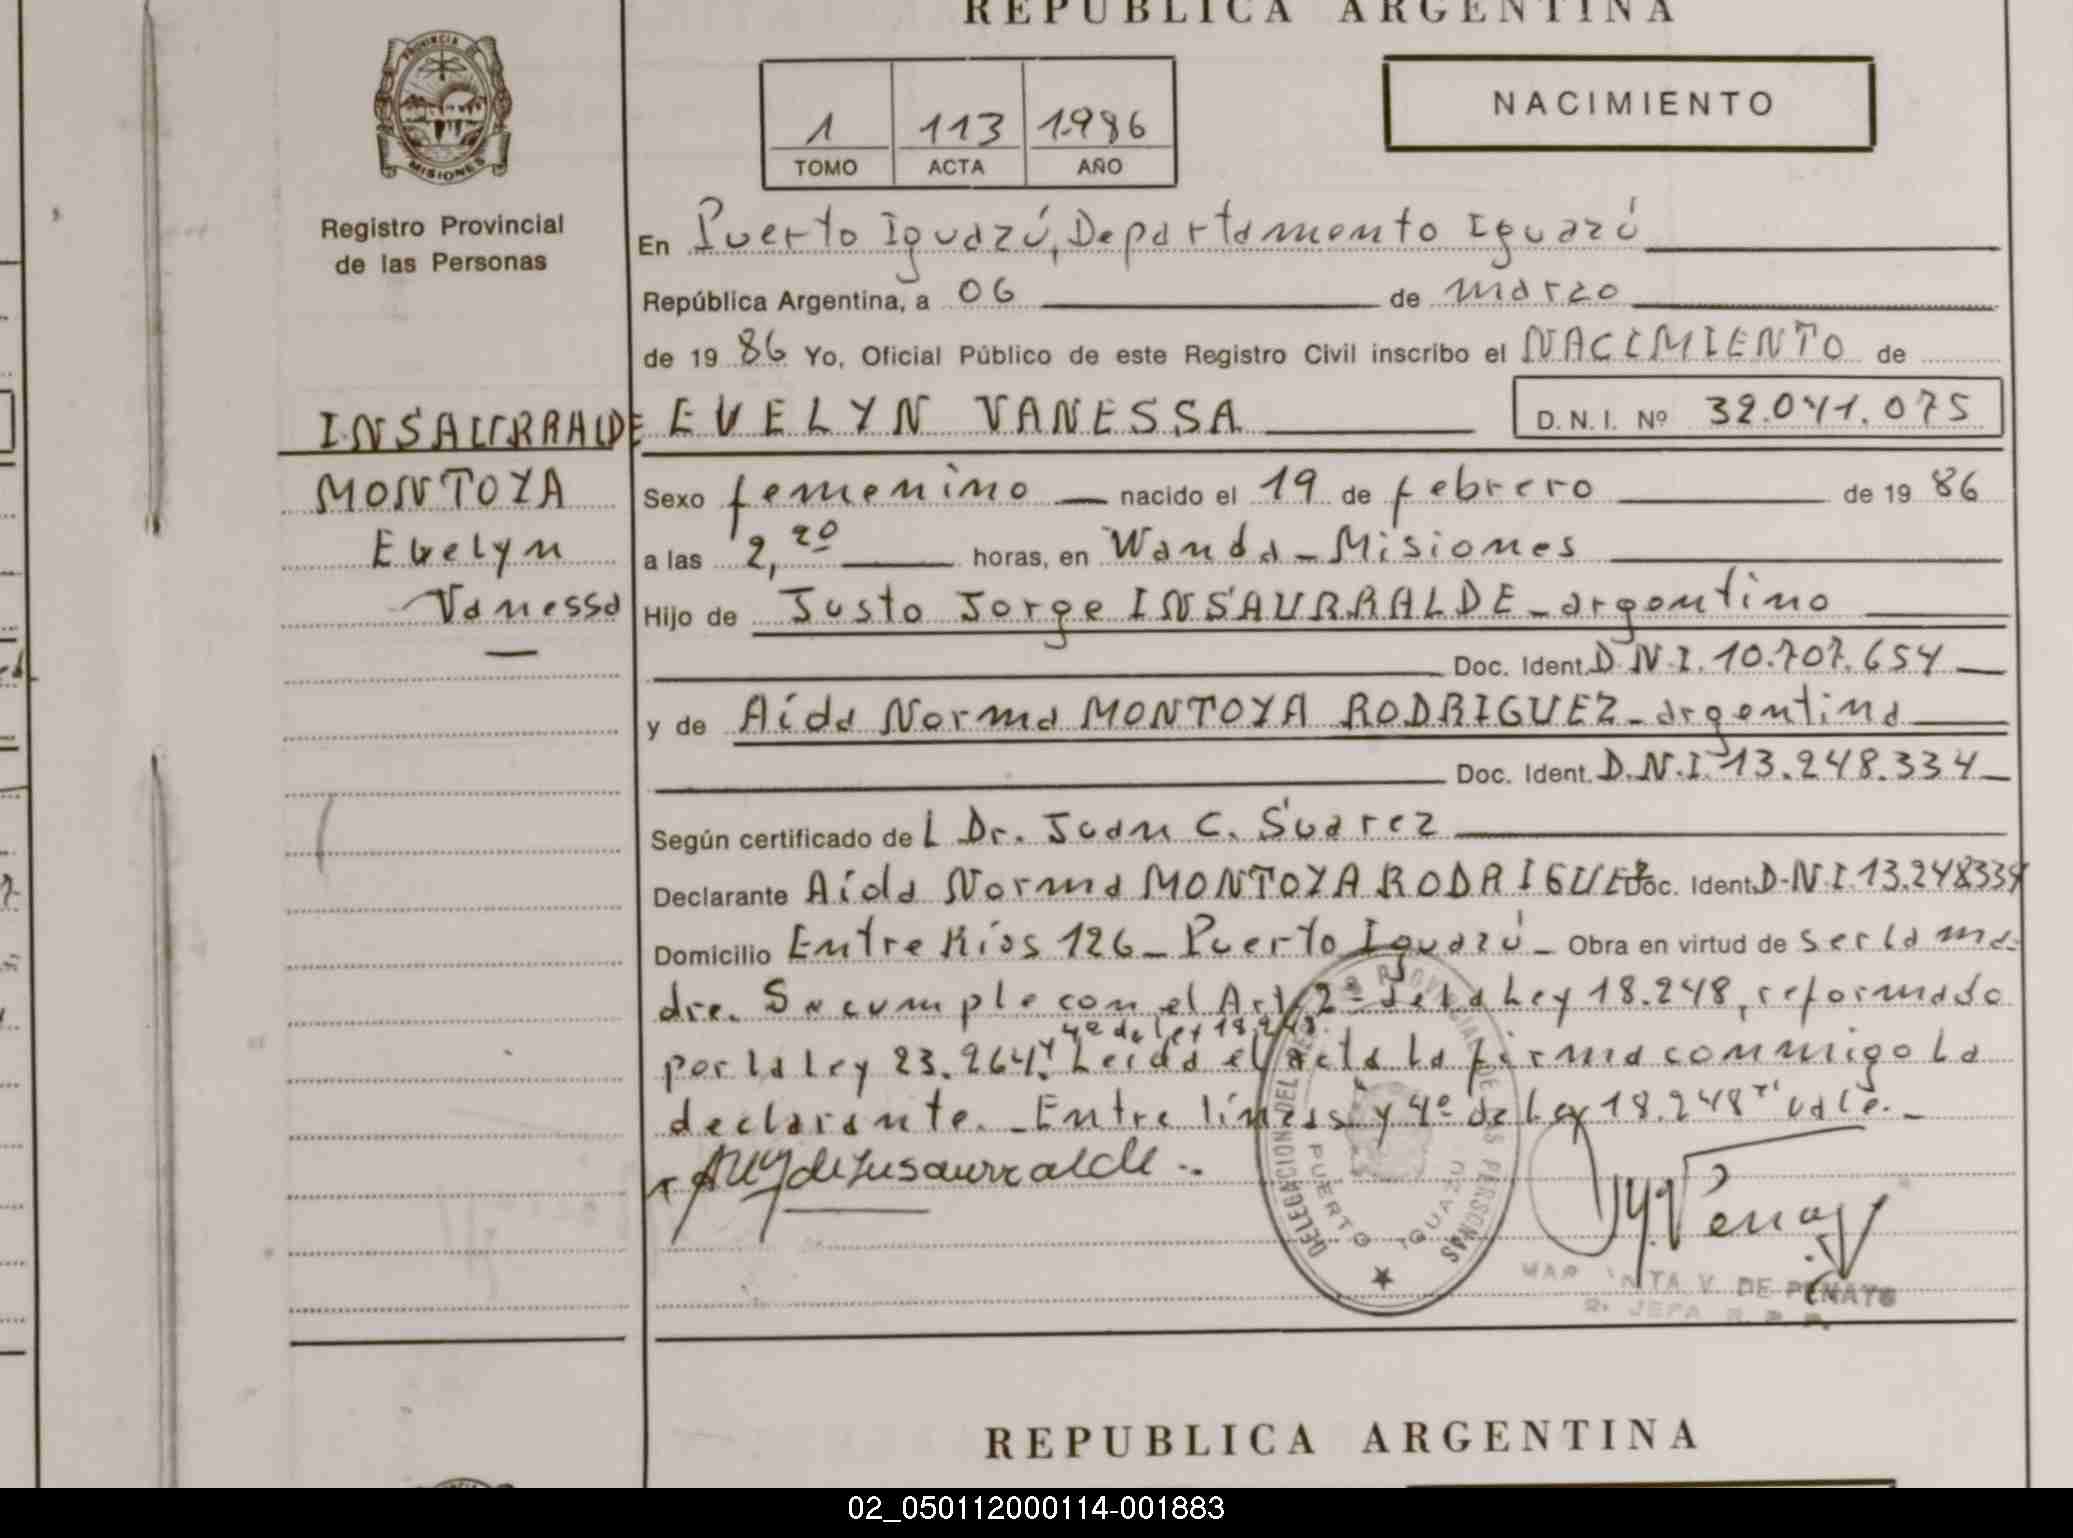 REPUBLICA ARGENTINA
PROVINCIA DE
MISIONES
Registro Provincial
de las Personas
1 113 1.986
TOMO ACTA AÑO
NACIMIENTO
En Puerto Iguazú, Departamento Iguazú
República Argentina, a 06 de marzo
de 19 86 Yo, Oficial Público de este Registro Civil inscribo el NACIMIENTO de
INSAURRALDE EVELYN VANESSA D. N. I. Nº 32.041.075
MONTOYA
Evelyn
Vanessa
Sexo femenino nacido el 19 de febrero de 19 86
a las 2,20 horas, en Wanda - Misiones
Hijo de Justo Jorge INSAURRALDE - argentino
Doc. Ident. D.N.I. 10.707.654
y de Aída Norma MONTOYA RODRIGUEZ - argentina
Doc. Ident. D.N.I. 13.248.334
Según certificado de L Dr. Juan C. Suarez
Declarante Aída Norma MONTOYA RODRIGUEZ Doc. Ident. D.N.I. 13.248334
Domicilio Entre Ríos 126 - Puerto Iguazú - Obra en virtud de ser la ma-
dre. Se cumple con el Art. 2º de la Ley 18.248, reformado
y 4º de Ley 18.248.
por la Ley 23.264. Leida el acta la firma conmigo la
declarante. - Entre líneas y 4º de Ley 18.248 "vale. -
de Insaurralde
DELEGACION DEL REGISTRO PROVINCIAL DE LAS PERSONAS
PUERTO IGUAZU
V. DE PENAYO
JEFA R. P. P.
REPUBLICA ARGENTINA
02_050112000114-001883